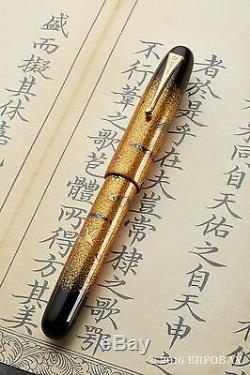 天佑之自天申
者於是乎在夫豈常棣之歌鄂
不行葦之歌苞體
所得方其美
盛而擬其休嘉
© 2016 ERFOBAY